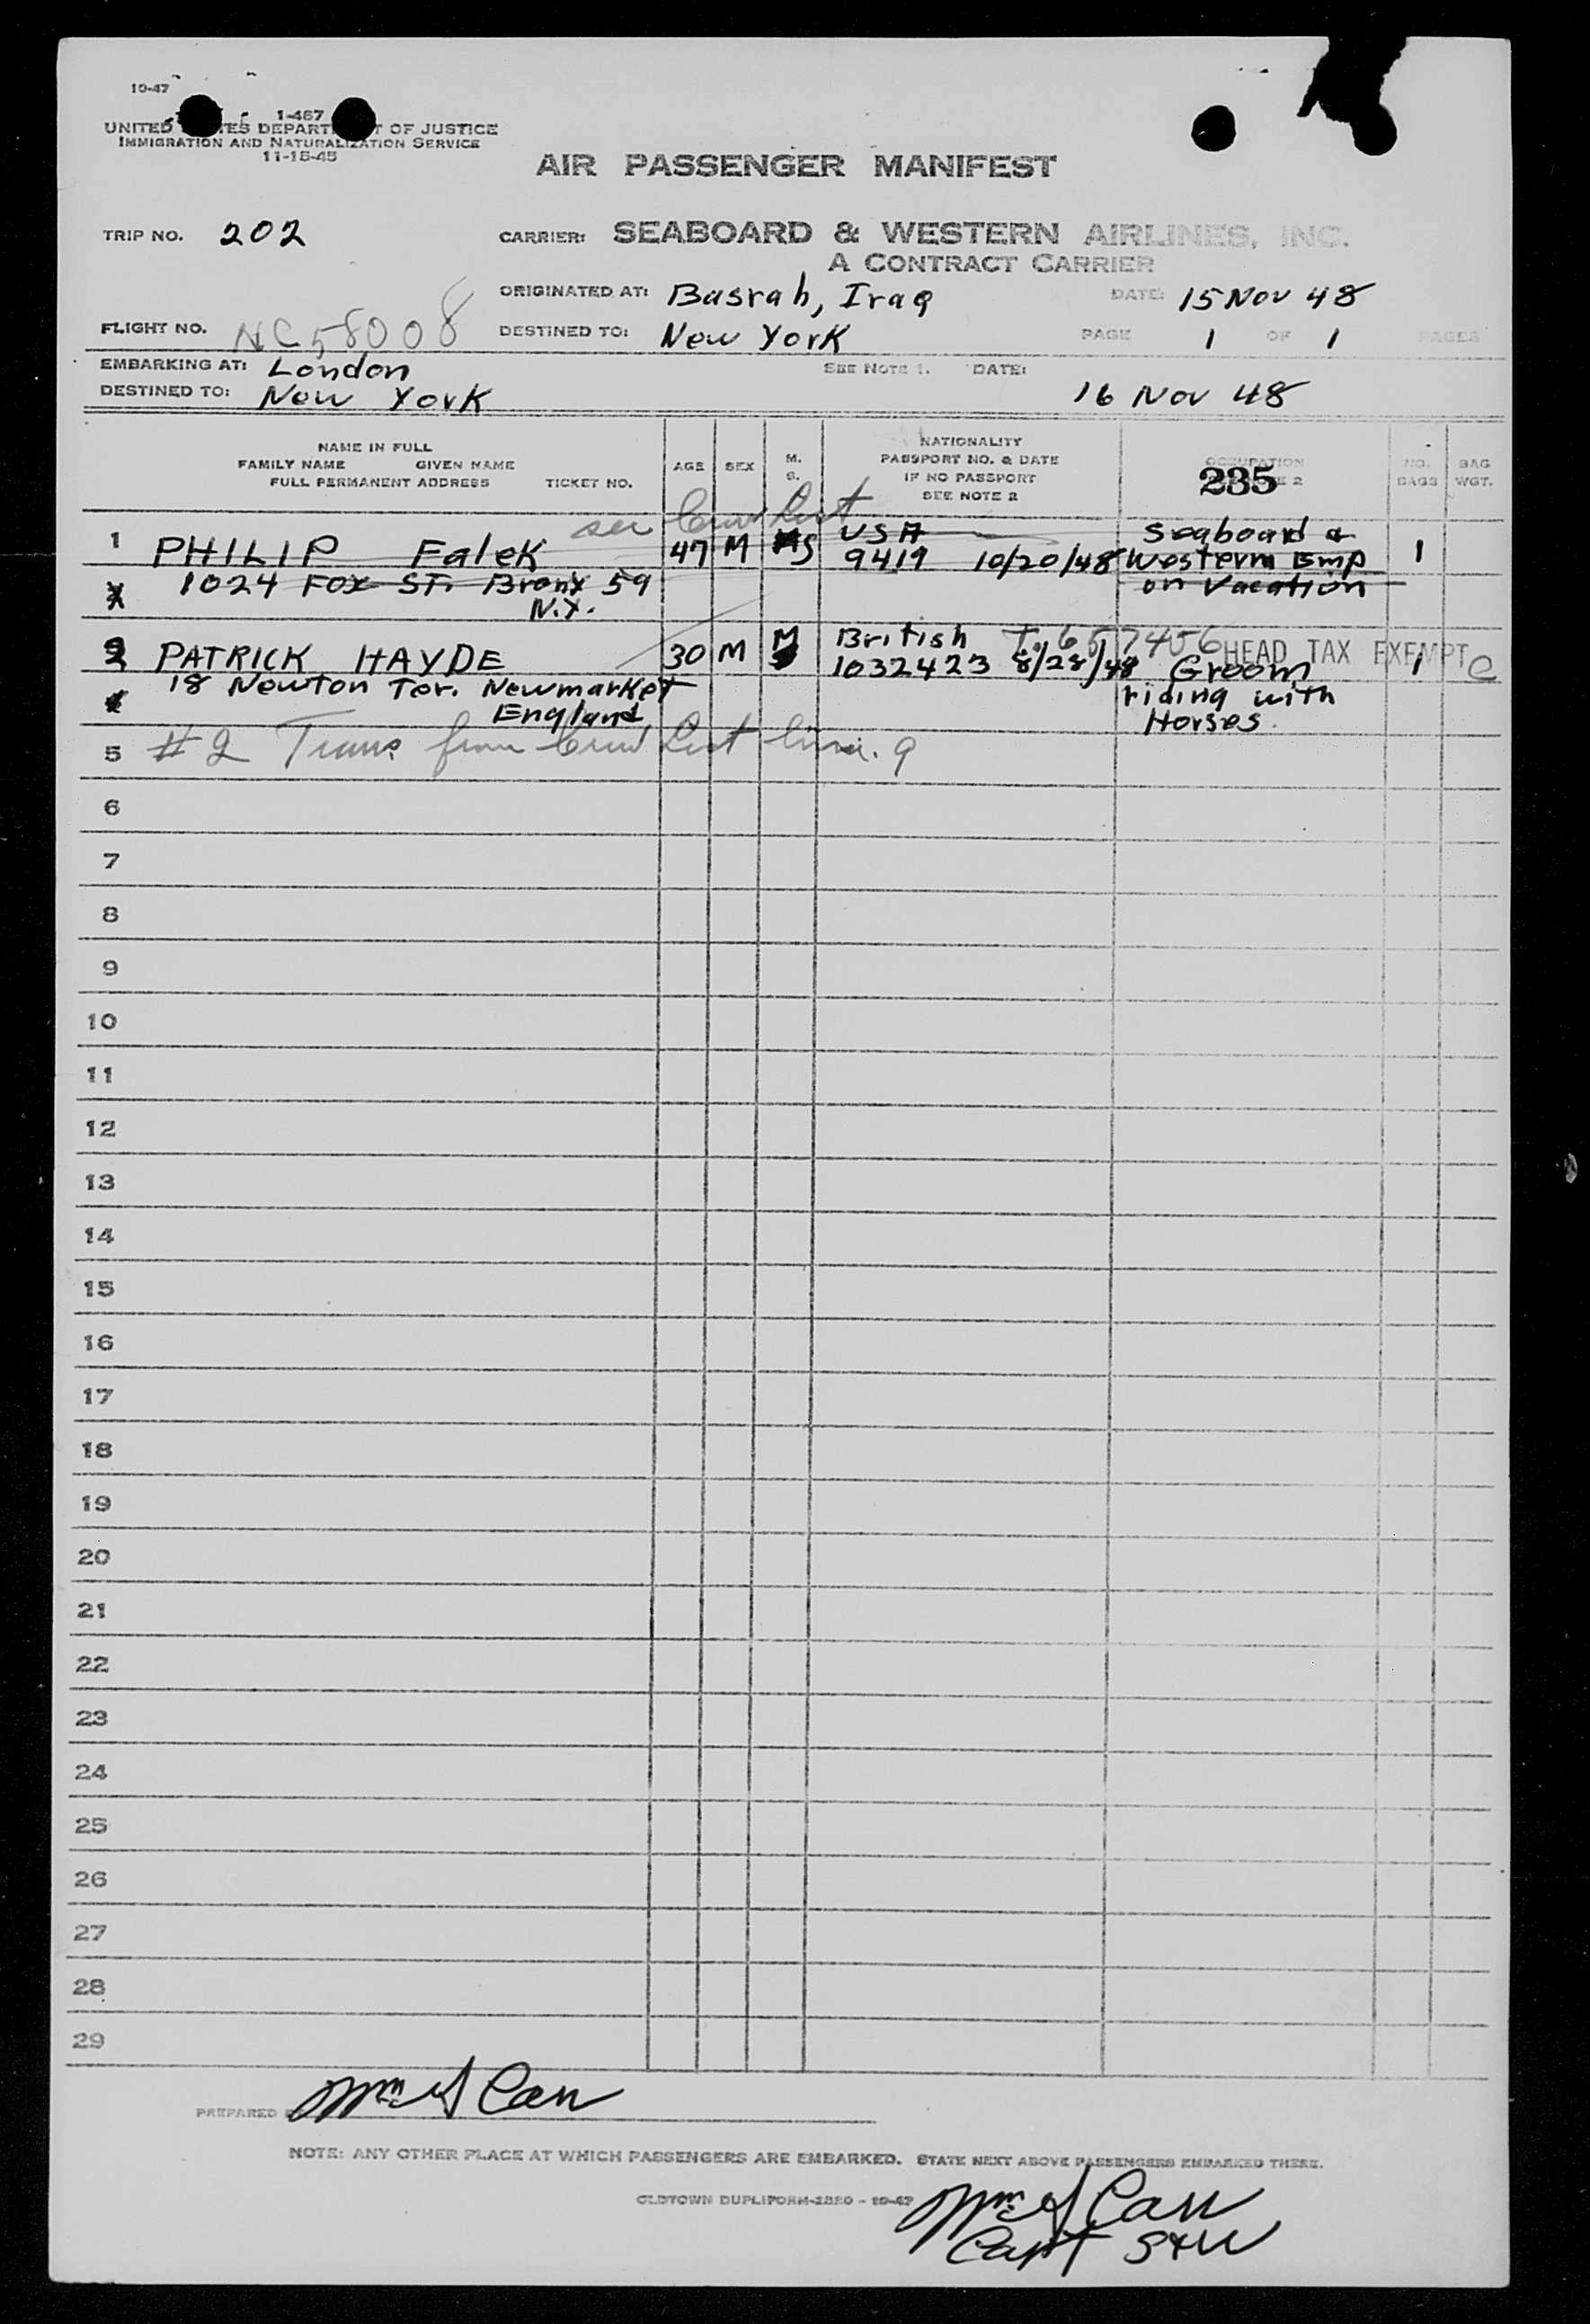 10-47
1-467
UNITED TES DEPART T OF JUSTICE
IMMIGRATION AND NATURALIZATION SERVICE
11-15-45
AIR PASSENGER MANIFEST
TRIP NO. 202
CARRIER: SEABOARD & WESTERN AIRLINES, INC.
A CONTRACT CARRIER
ORIGINATED AT: Basrah, Iraq DATE: 15 Nov 48
FLIGHT NO. NC58008 DESTINED TO: New York PAGE 1 OF 1 PAGES
EMBARKING AT: London SEE NOTE 1. DATE:
DESTINED TO: New York 16 Nov 48
NAME IN FULL
FAMILY NAME GIVEN NAME
FULL PERMANENT ADDRESS TICKET NO.
AGE SEX M. S.
NATIONALITY
PASSPORT NO. & DATE
IF NO PASSPORT
SEE NOTE 2
OCCUPATION
235 2
NO. BAGS
BAG WGT.
see Crew List
1 PHILIP Falek 47 M S USA 9419 10/20/48 Seaboard & Western Emp on Vacation 1
1024 Fox St. Bronx 59
N.Y.
2 PATRICK HAYDE 30 M M British 1032423 8/28/48 657456 HEAD TAX EXEMPT Groom riding with Horses. 1 C
18 Newton Ter. Newmarket
England
5 #2 Trans from Crew List 9
6
7
8
9
10
11
12
13
14
15
16
17
18
19
20
21
22
23
24
25
26
27
28
29
PREPARED Wm Carr
NOTE: ANY OTHER PLACE AT WHICH PASSENGERS ARE EMBARKED. STATE NEXT ABOVE PASSENGERS EMBARKED THERE.
OLDTOWN DUPLIFORM-2820 - 10-47
Wm Carr
Capt S&W